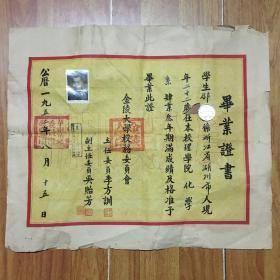 畢業證書
學生
係浙江省湖州市人現
年二十二歲在本校理學院化學
系肄業叁年期滿成績及格准予
畢業此證
金陵大學校務委員會
主任委員李方訓
副主任委員吳貽芳
公曆一九五二年八月十五日